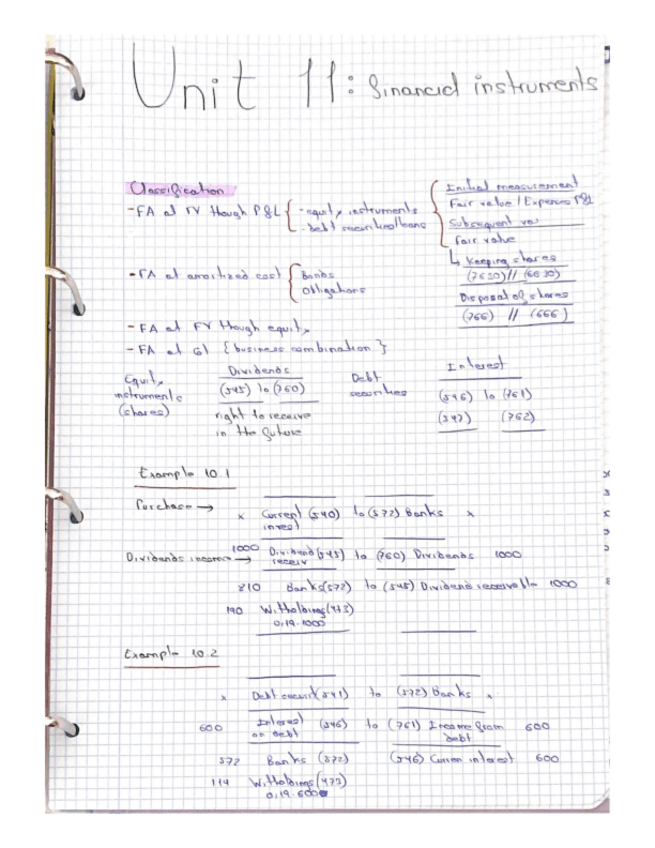 Unit 11: Financial instruments
Classification
- FA at FV though P&L { - equity instruments
- debt securities/loans
Initial measurement
Fair value / Expenses P&L
Subsequent
Fair value
↳ Keeping shares
(7630) // (6630)
Disposal of shares
(766) // (666)
- FA at amortized cost { Bonds
Obligations
- FA at FV though equity
- FA at { business combination }
Equity instruments (shares)
Dividends
(545) to (760)
right to receive
in the future
Debt securities
Interest
(546) to (761)
(547) (762)
Example 10.1
Purchase → x Current (540) to (572) Banks x
invest
Dividends income → 1000 Dividend (545) to (760) Dividends 1000
receiv
810 Banks (572) to (545) Dividend receivable 1000
190 Witholdings (473)
0,19·1000
Example 10.2
x Debt securit (541) to (572) Banks x
600 Interest (546) to (761) Income from 600
on debt debt
Banks (572) (546) Curren interest 600
114 Witholdings (473)
0,19·600